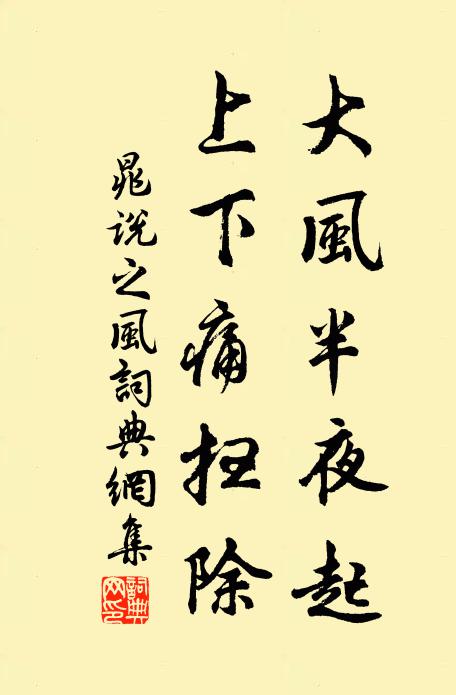 大風半夜起
上下痛扫除
晁說之風詞典網集
詞典網印